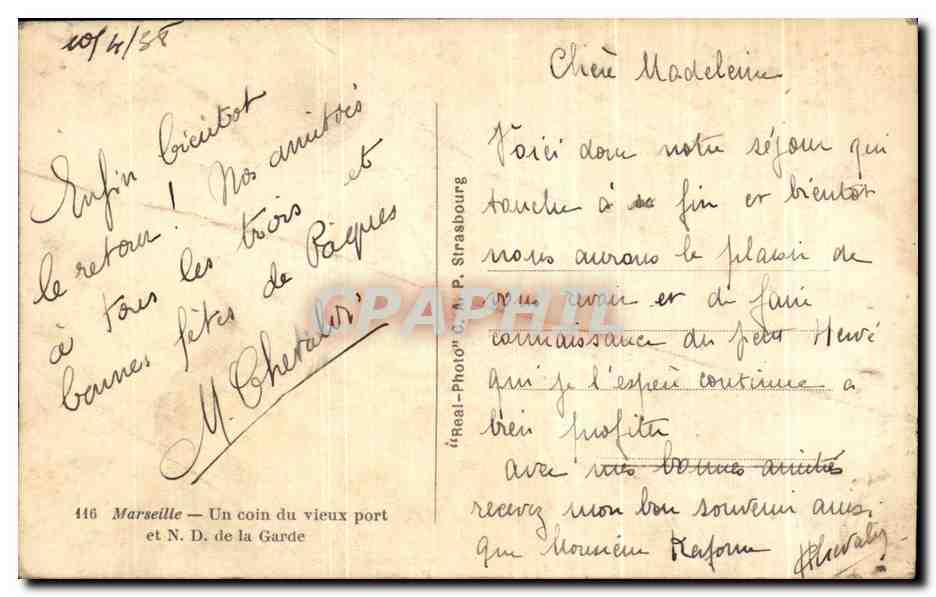 10/4/38
Enfin bientôt
le retour ! Nos amitiés
à tous les trois et
bonnes fêtes de Pâques
M. Chevalier
116 Marseille — Un coin du vieux port
et N. D. de la Garde
"Real-Photo" C. A. P. Strasbourg
CPAPHIL
Chère Madeleine
Voici donc notre séjour qui
touche à sa fin et bientôt
nous aurons le plaisir de
vous revoir et de faire
connaissance du petit Hervé
qui je l'espère continue a
bien profiter
avec mes bonnes amitiés
recevez mon bon souvenir ainsi
que Monsieur
Chevalier